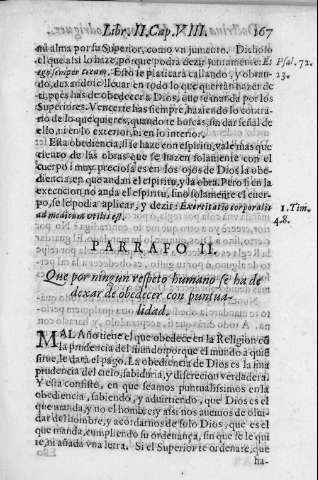 Libr. II. Cap. VIII. 167
mi alma por su Superior, como vn jumento. Dicholo
el que assi lo haze, porque podrà dezir juntamente: Et Psal. 72.
ego semper tecum. Esto se platicarà callando, y obran- 23.
do, dexandote lleuar en todo lo que querràn hazer de
ti, pues has de obedecer a Dios, que te manda por los
Superiores. Vencerte has siempre, haziendo lo contra-
rio de lo que quieres, quando te fuerças, sin dar señal de
ello, ni en lo exterior, ni en lo interior.
Esta obediencia, si se haze con espiritu, vale mas que
ciento de las obras que se hazen solamente con el
cuerpo: muy preciosa es en los ojos de Dios la obe-
diencia, en que andan el espiritu, y la obra. Pero si en la
execucion, no anda el espiritu, sinò solamente el cuer-
po, se le podia aplicar, y dezir: Exercitatio corporalis 1. Tim.
ad modicum utilis est. 4. 8.
PARRAFO II.
Que por ningun respeto humano se ha de
dexar de obedecer con puntua-
lidad.
MAL Año tiene el que obedece en la Religion cõ
la prudencia del mundo; porque el mundo a quiē
sirue, le darà el pago. La obediencia de Dios es la suma
prudencia del cielo, sabiduria, y discrecion verdadera.
Y esta consiste, en que seamos puntualissimos en la
obediencia, sabiendo, y aduirtiendo, que Dios es el
que manda, y no el hombre; y assi nos auemos de olui-
dar del hombre, y acordarnos de solo Dios, que es el
que manda, cumpliendo su ordenança, sin que se le qui
te, ni añada vna letra. Si el Superior te ordenare, que
ha-